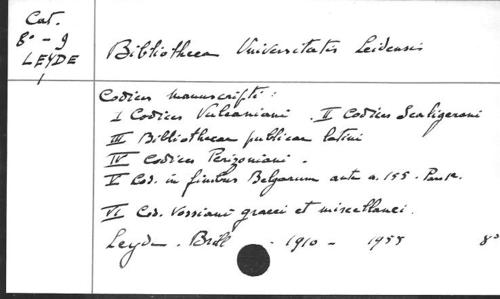 Cat.
8° - 9
LEYDE
1
Bibliotheca Universitatis Leidensis
Codices manuscripti:
I Codices Vulcaniani . II Codices Scaligerani
III Bibliothecae publicae latini
IV Codices Perizoniani .
V Cod. in finibus Belgarum ante a. 155 .
VI Cod. Vossiani graeci et miscellanei.
Leyde . Brill . - 1910 - 1955 8°